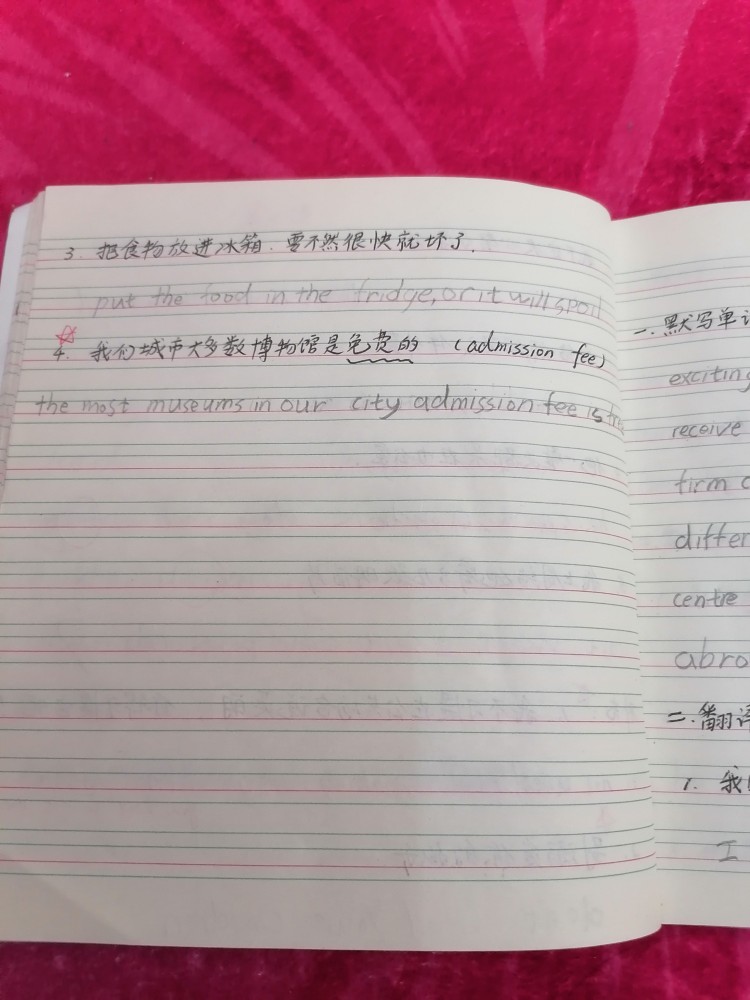 3. 把食物放进冰箱.要不然很快就坏了.
put the food in the fridge, or it will spoil
4. 我们城市大多数博物馆是免费的 (admission fee)
the most museums in our city admission fee is
一.默写单
exciting
receive
firm
differ
centre
abro
二.翻译
1. 我
I